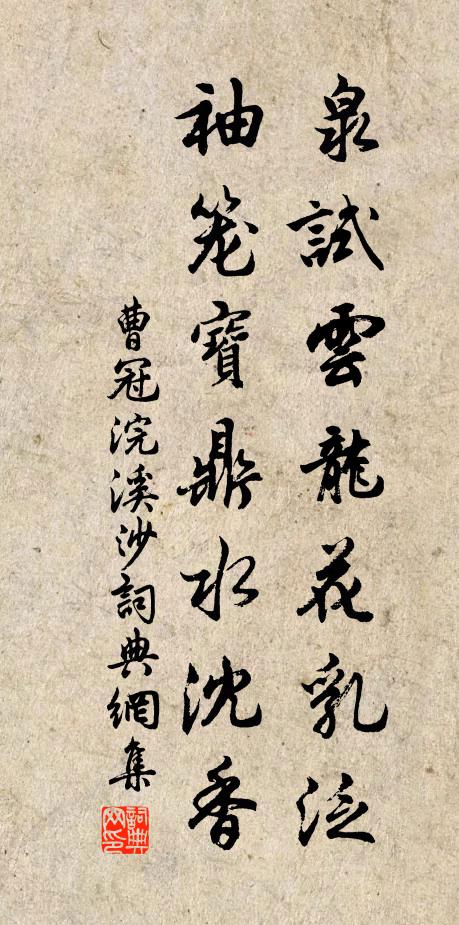 泉試雲龍花乳泛
袖笼寶鼎水沈香
曹冠浣溪沙詞典網集
詞典网印